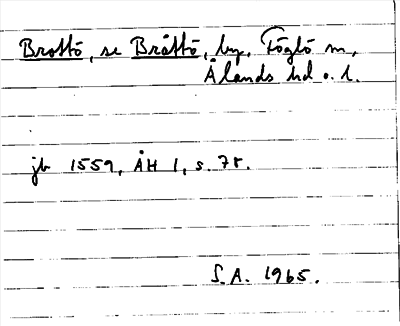 Brottö, se Bråttö, by, Föglö sn,
Ålands hd o. l.
jb 1559, ÅH 1, s. 78.
S.A. 1965.